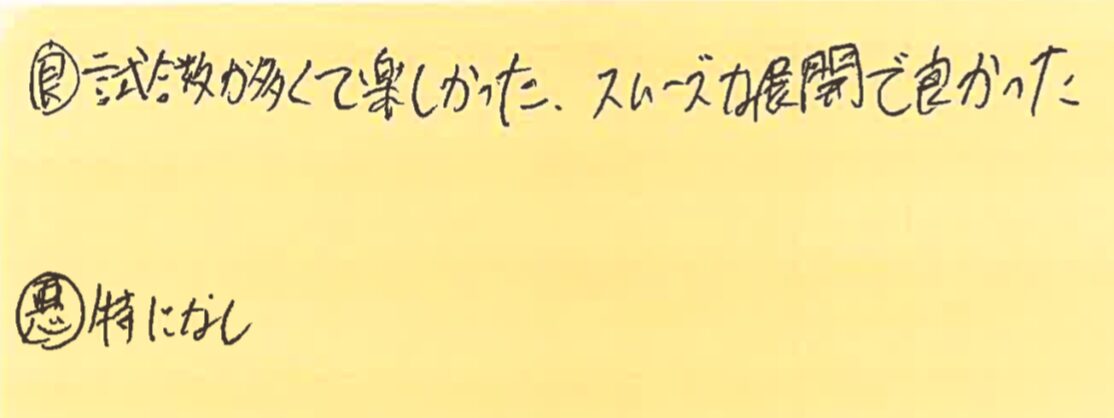 良 試合数が多くて楽しかった、スムーズな展開で良かった
悪 特になし